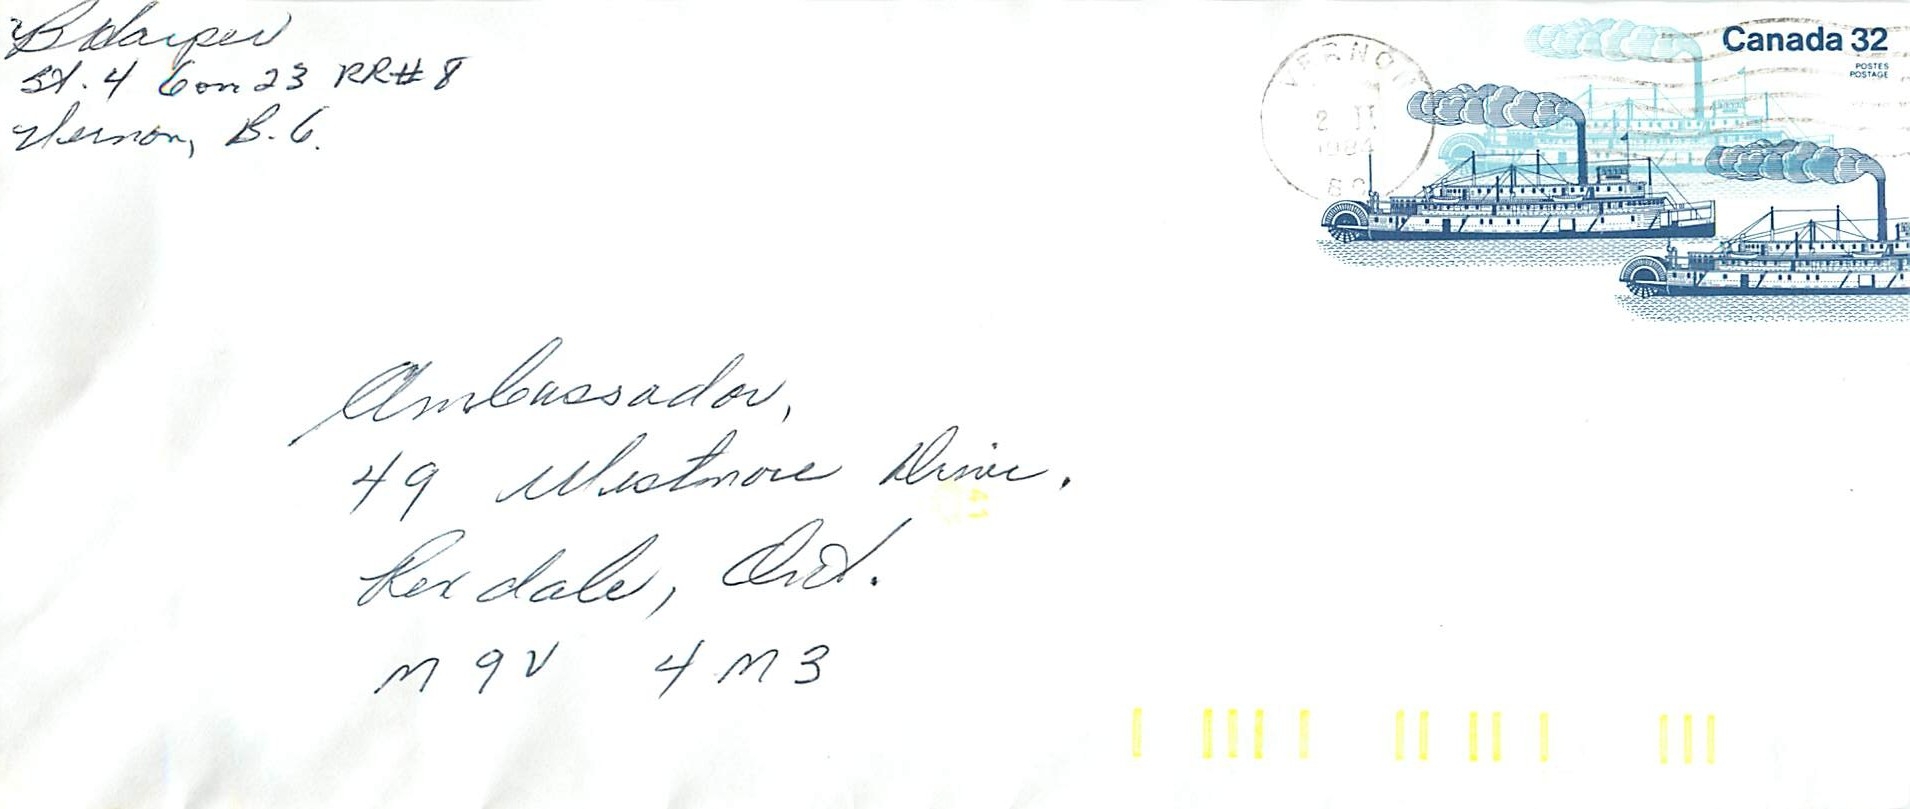 B Harper
St. 4 Con 23 RR# 8
Vernon, B.C.
Canada 32
POSTES
POSTAGE
VERNON
2 II
1984
BC
Ambassador,
49 Westmore Drive.
Rexdale, Ont.
M9V 4M3
41